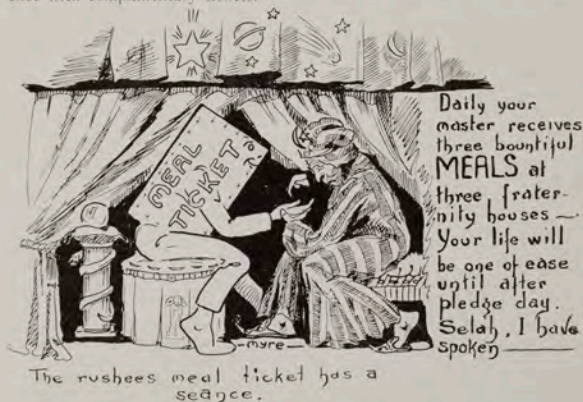 MEAL
TICKET
Daily your
master receives
three bountiful
MEALS at
three frater-
nity houses —
Your life will
be one of ease
until after
pledge day.
Selah, I have
spoken
-myre-
The rushees meal ticket has a
seance.